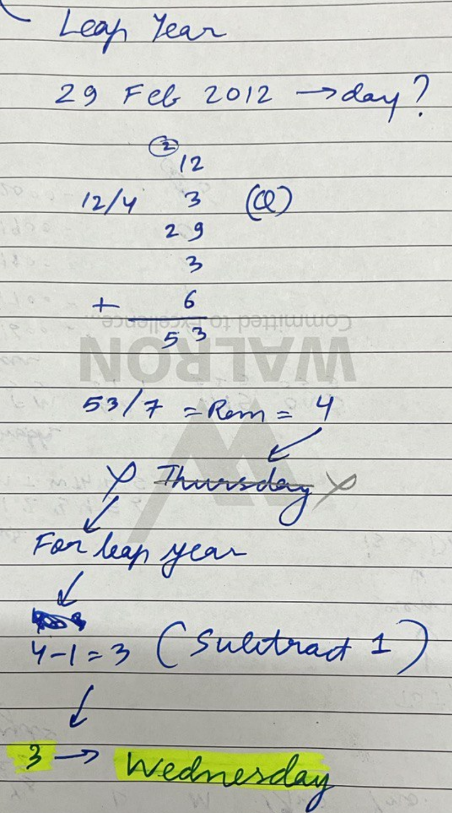 Leap Year
29 Feb 2012 → day?
② 12
12/4 3 (Q)
29
3
+ 6
Committed to Excellence...
53
WALRON
53/7 = Rem = 4
✗ Thursday ✗
For leap year
4-1=3 (Subtract 1)
3 → Wednesday